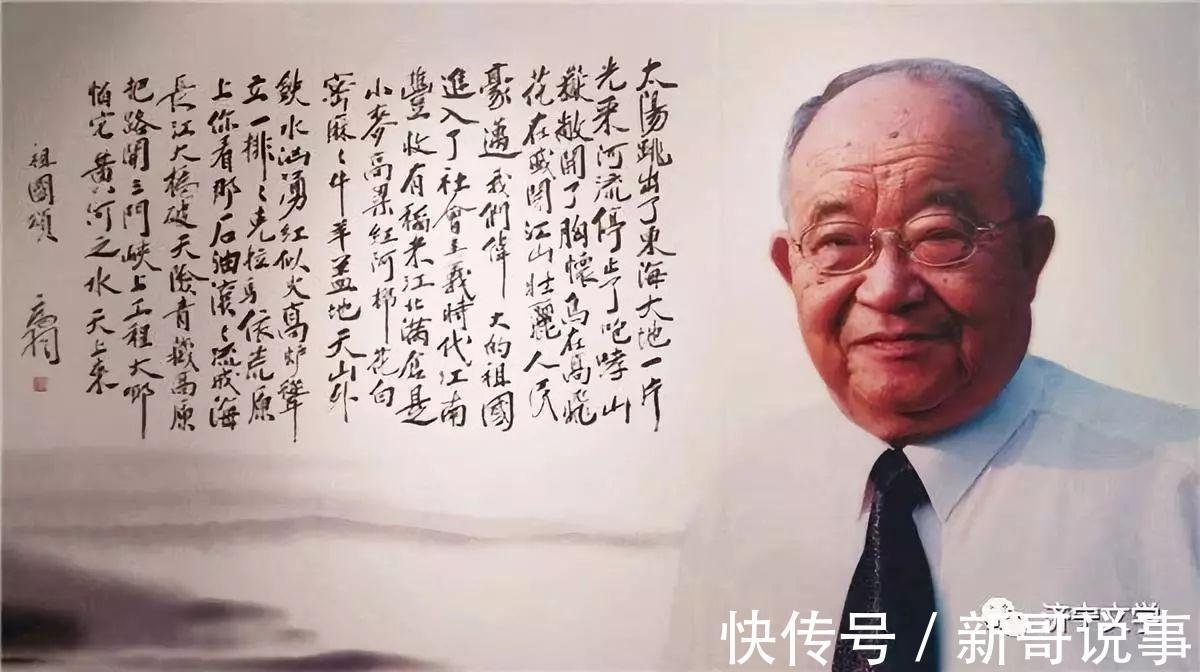 太陽跳出了東海大地一片
光采河流停止了咆哮山
嶽敞開了胸懷鳥在高飛
花在盛開江山壯麗人民
豪邁我們偉大的祖國
進入了社會主義時代江南
豐收有稻米江北滿倉是
小麥高梁紅阿棉花白
密麻々牛羊蓋地天山外
鉄水汹湧紅似火高炉聳
立一排々克拉馬依荒原
上你看那石油滾々流成海
長江大橋破天險青藏高原
把路開三門峽上工程大哪
怕它黃河之水天上來
祖國頌
济宁文学
快传号 / 新哥说事